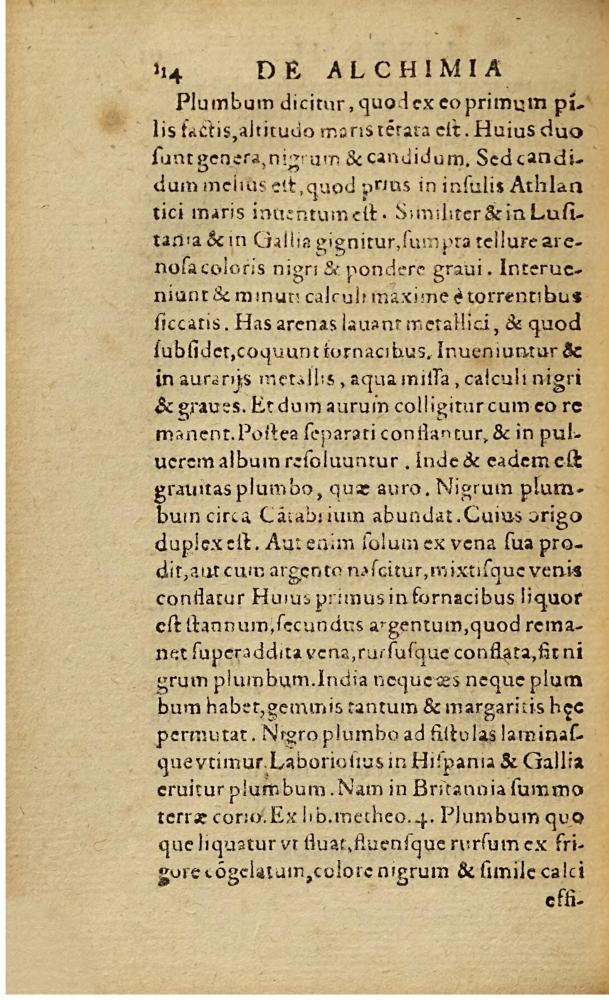 114 DE ALCHIMIA
Plumbum dicitur, quod ex eo primum pi-
lis factis, altitudo maris tētata est. Huius duo
sunt genera, nigrum & candidum. Sed candi-
dum melius est, quod prius in insulis Athlan
tici maris inuentum est. Similiter & in Lusi-
tania & in Gallia gignitur, sumpta tellure are-
nosa coloris nigri & pondere graui. Interue-
niunt & minuti calculi maxime è torrentibus
siccatis. Has arenas lauant metallici, & quod
subsidet, coquunt fornacibus. Inueniuntur &
in aurarijs metallis, aqua missa, calculi nigri
& graues. Et dum aurum colligitur cum eo re
manent. Postea separati conflantur, & in pul-
uerem album resoluuntur. Inde & eadem est
grauitas plumbo, quæ auro. Nigrum plum-
bum circa Cātabrium abundat. Cuius origo
duplex est. Aut enim solum ex vena sua pro-
dit, aut cum argento nascitur, mixtisque venis
conflatur Huius primus in fornacibus liquor
est stannum, secundus argentum, quod rema-
net superaddita vena, rursusque conflata, fit ni
grum plumbum. India neque æs neque plum
bum habet, gemmis tantum & margaritis hęc
permutat. Nigro plumbo ad fistulas laminas-
que vtimur. Laboriosius in Hispania & Gallia
eruitur plumbum. Nam in Britannia summo
terræ corio. Ex lib. metheo. 4. Plumbum quo
que liquatur vt fluat, fluensque rursum ex fri-
gore cōgelatum, colore nigrum & simile calci
effi-